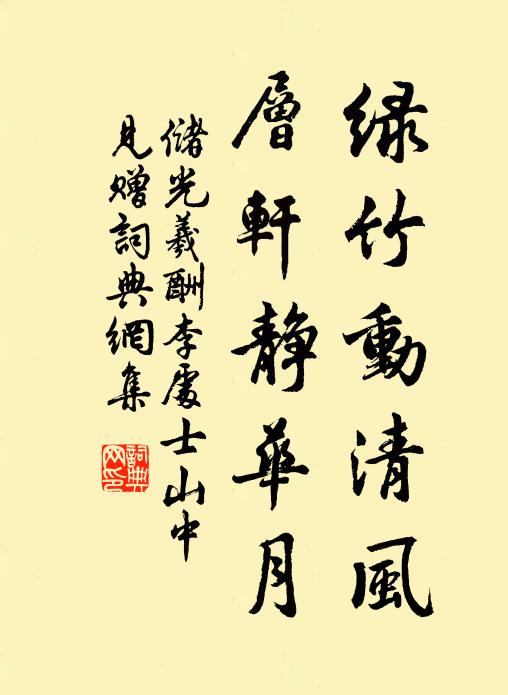 绿竹動清風
層軒靜華月
儲光羲酬李處士山中
見贈詞典網集
詞典
网印